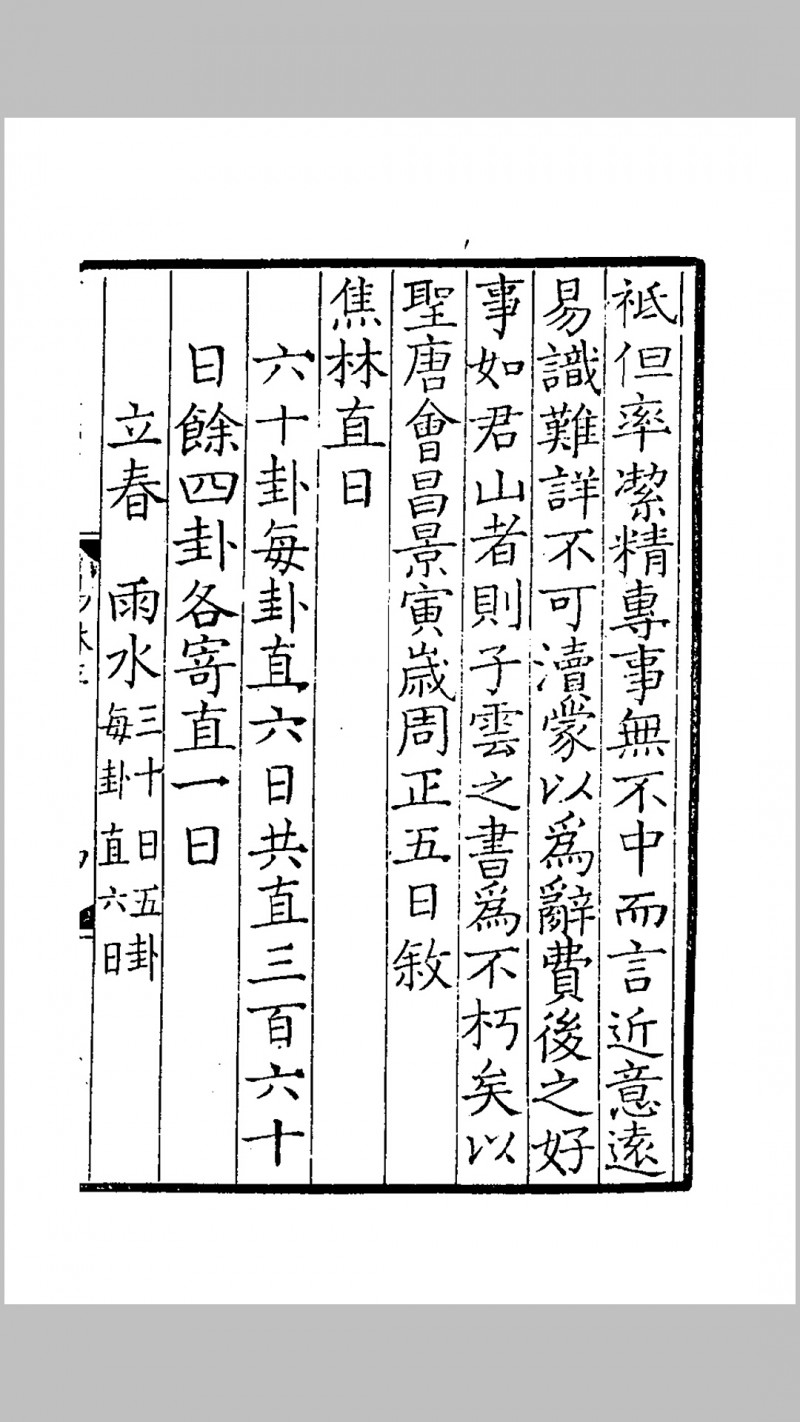 祇但率潔精專事無不中而言近意遠
易識難詳不可瀆蒙以為辭費後之好
事如君山者則子雲之書為不朽矣以
聖唐會昌景寅歲周正五日敘
焦林直日
六十卦每卦直六日共直三百六十
日餘四卦各寄直一日
立春 雨水 三十日五卦
每卦直六日